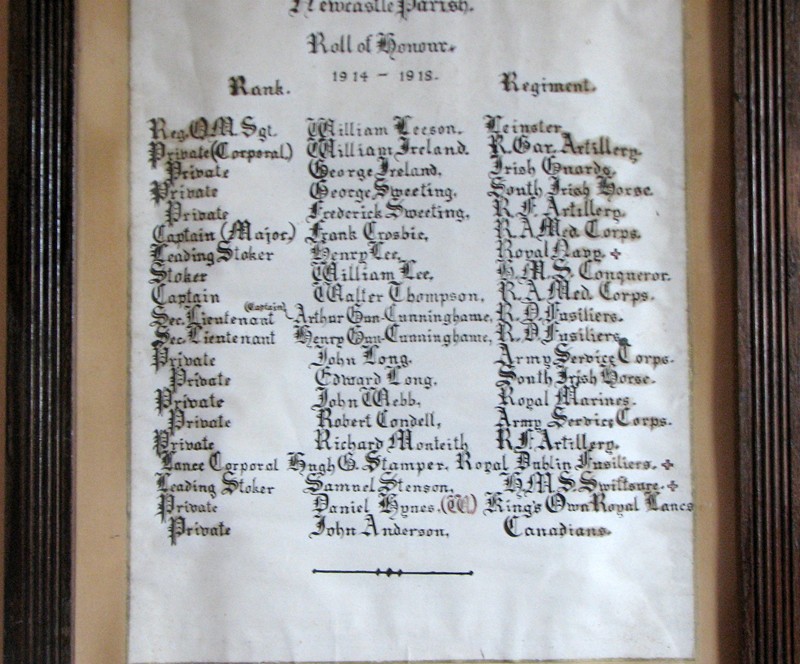 Newcastle Parish.
Roll of Honour.
1914 - 1918.
Rank. Regiment.
Reg. Q.M. Sgt. William Leeson. Leinster
Private (Corporal) William Ireland. R. Gar. Artillery.
Private George Ireland. Irish Guards.
Private George Sweeting. South Irish Horse.
Private Frederick Sweeting. R. F. Artillery.
Captain (Major.) Frank Crosbie, R. A Med. Corps.
Leading Stoker Henry Lee, Royal Navy. +
Stoker William Lee. H. M. S. Conqueror.
Captain Walter Thompson, R. A Med. Corps.
Sec. Lieutenant (Captain) Arthur Gun-Cunninghame, Fusiliers.
Sec. Lieutenant Henry Gun-Cunninghame, Fusiliers.
Private John Long. Army Service Corps.
Private Edward Long, South Irish Horse.
Private John Webb, Royal Marines.
Private Robert Condell, Army Service Corps.
Private Richard Monteith R. F. Artillery.
Lance Corporal Hugh G. Stamper. Royal Dublin Fusiliers. +
Leading Stoker Samuel Stenson, H. M. S. Swiftsure. +
Private Daniel Hynes. (W) King's Own Royal Lancs
Private John Anderson, Canadians.